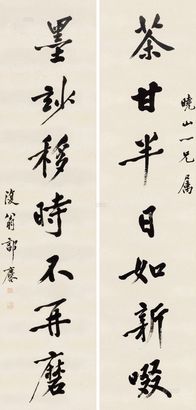 曉山一兄属
茶甘半日如新啜
墨玅移時不再磨
復翁郭麐